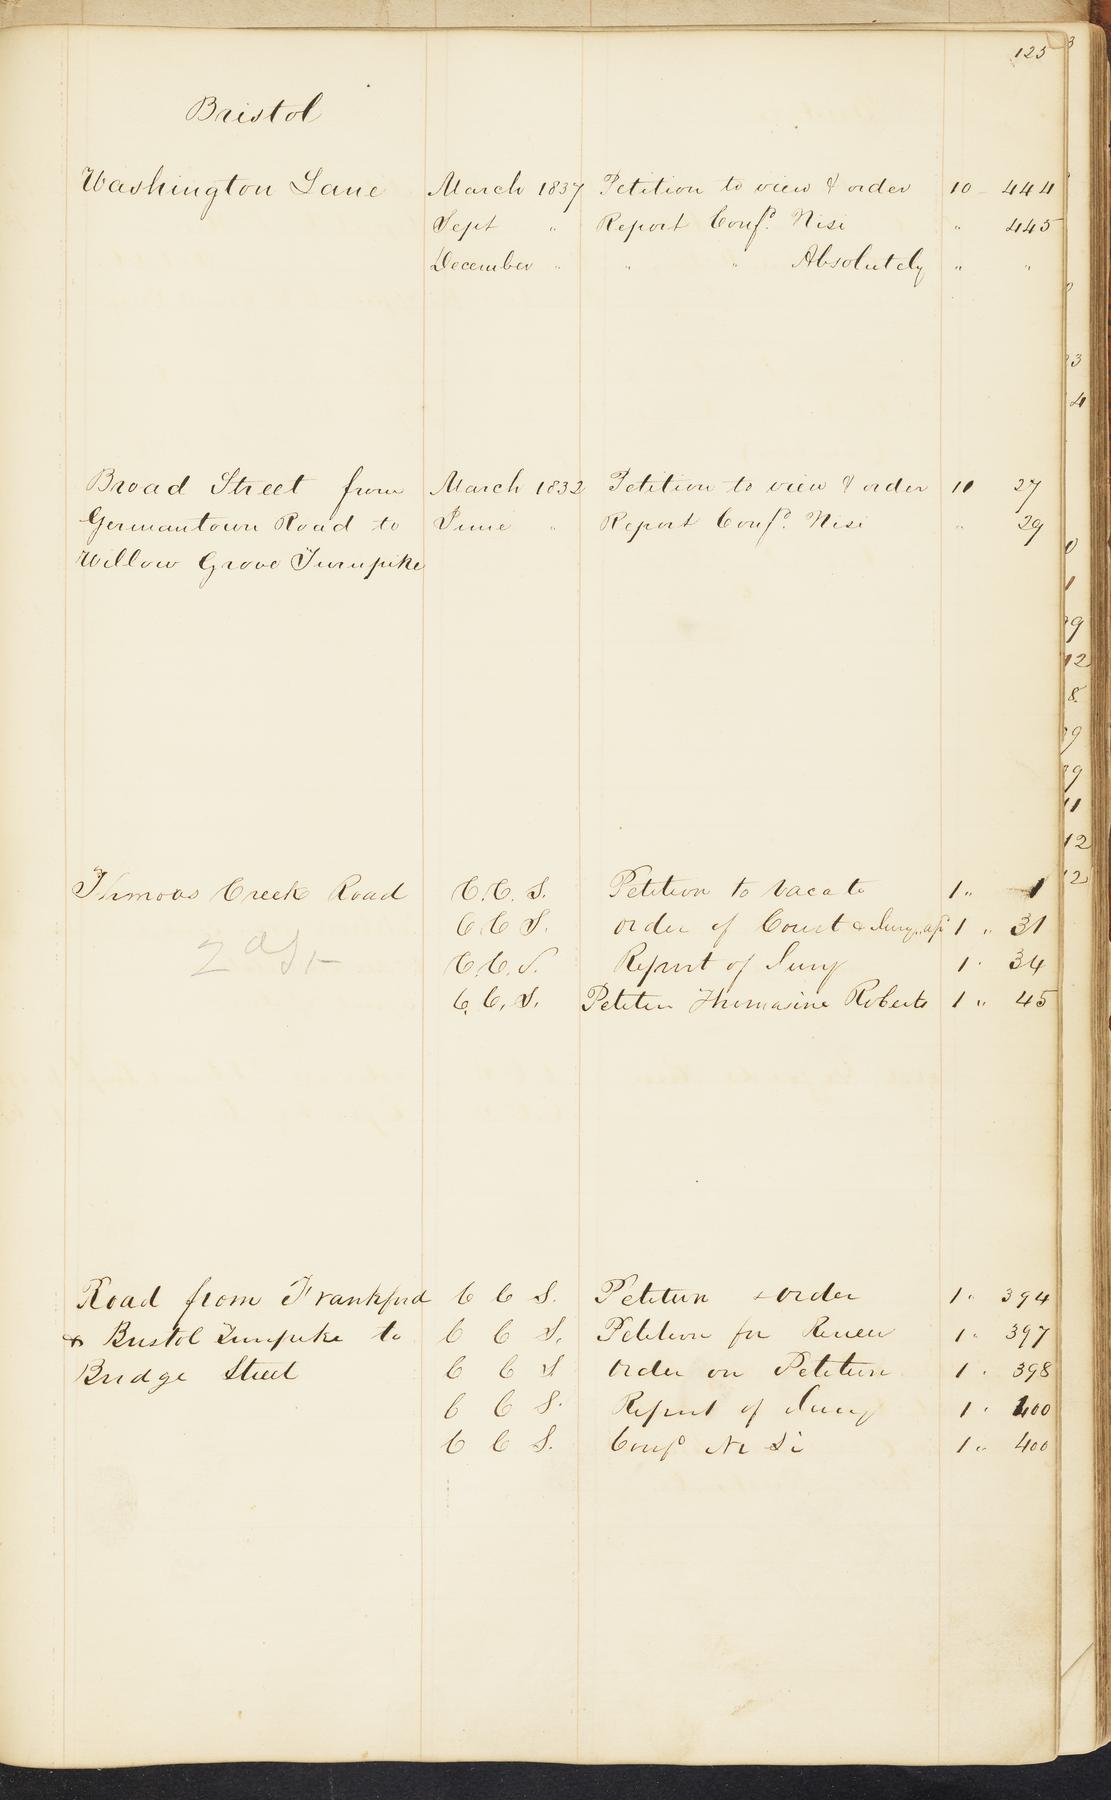 125
Bristol
Washington Lane March 1837 Petition to view & order 10 444
Sept " Report Confd. Nisi " 445
December " " " Absolutely " "
Broad Street from March 1832 Petition to view & order 10 27
Germantown Road to June " Report Confd. Nisi " 29
Willow Grove Turnpike
Creek Road C. C. S. Petition to Vacate 1 " 1
C C S. order of Court & 1 " 31
C. C. S. Report of Jury 1 " 34
C. C. S. Petition Thomasine Roberts 1 " 45
Road from Frankford C C S. Petition & order 1 " 394
& Bristol Turnpike to C C S. Petition for Review 1 " 397
Bridge Street C C S order on Petition 1 " 398
C C S. Report of Jury 1 " 400
C C S. Confd Ni Si 1 " 400